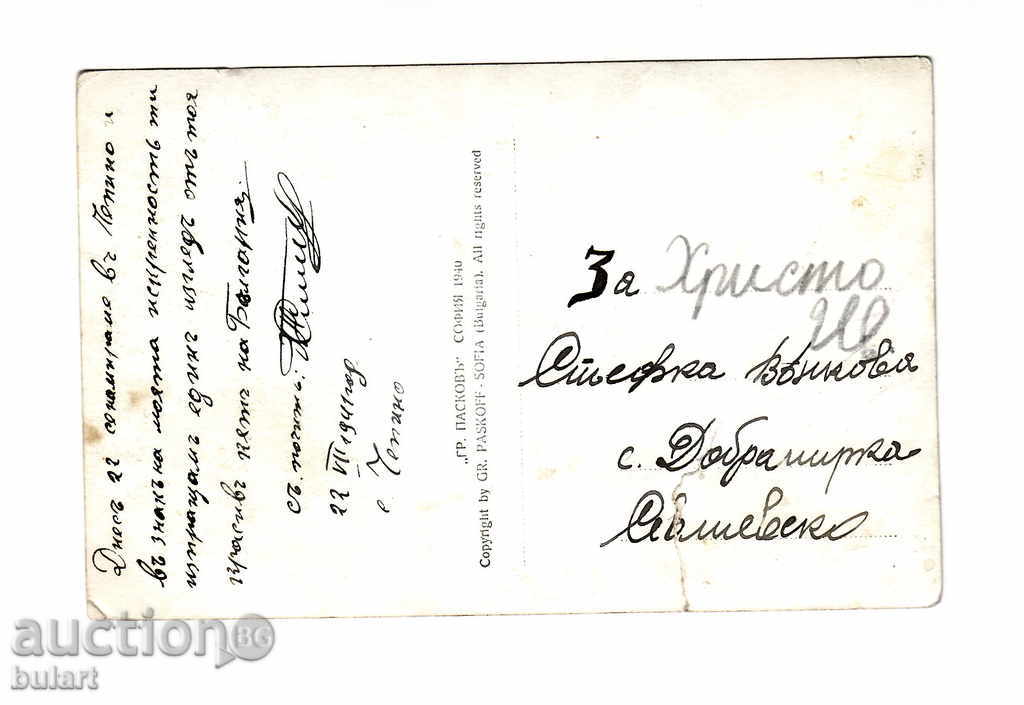 Днесъ 22 сонатраме въ Чепино и
въ знакъ на моята искренность ти
изпращам единъ изгледъ отъ тоя
красивъ кътъ на България.
съ почитъ:
22 VII 1941 год
с. Чепино
„ГР. ПАСКОВЪ" СОФИЯ 1940
Copyright by GR. PASKOFF - SOFIA (Bulgaria). All rights reserved
За Христо
Стефка Вънкова
с. Добромирка
Севлиевско
auction BG
bulart